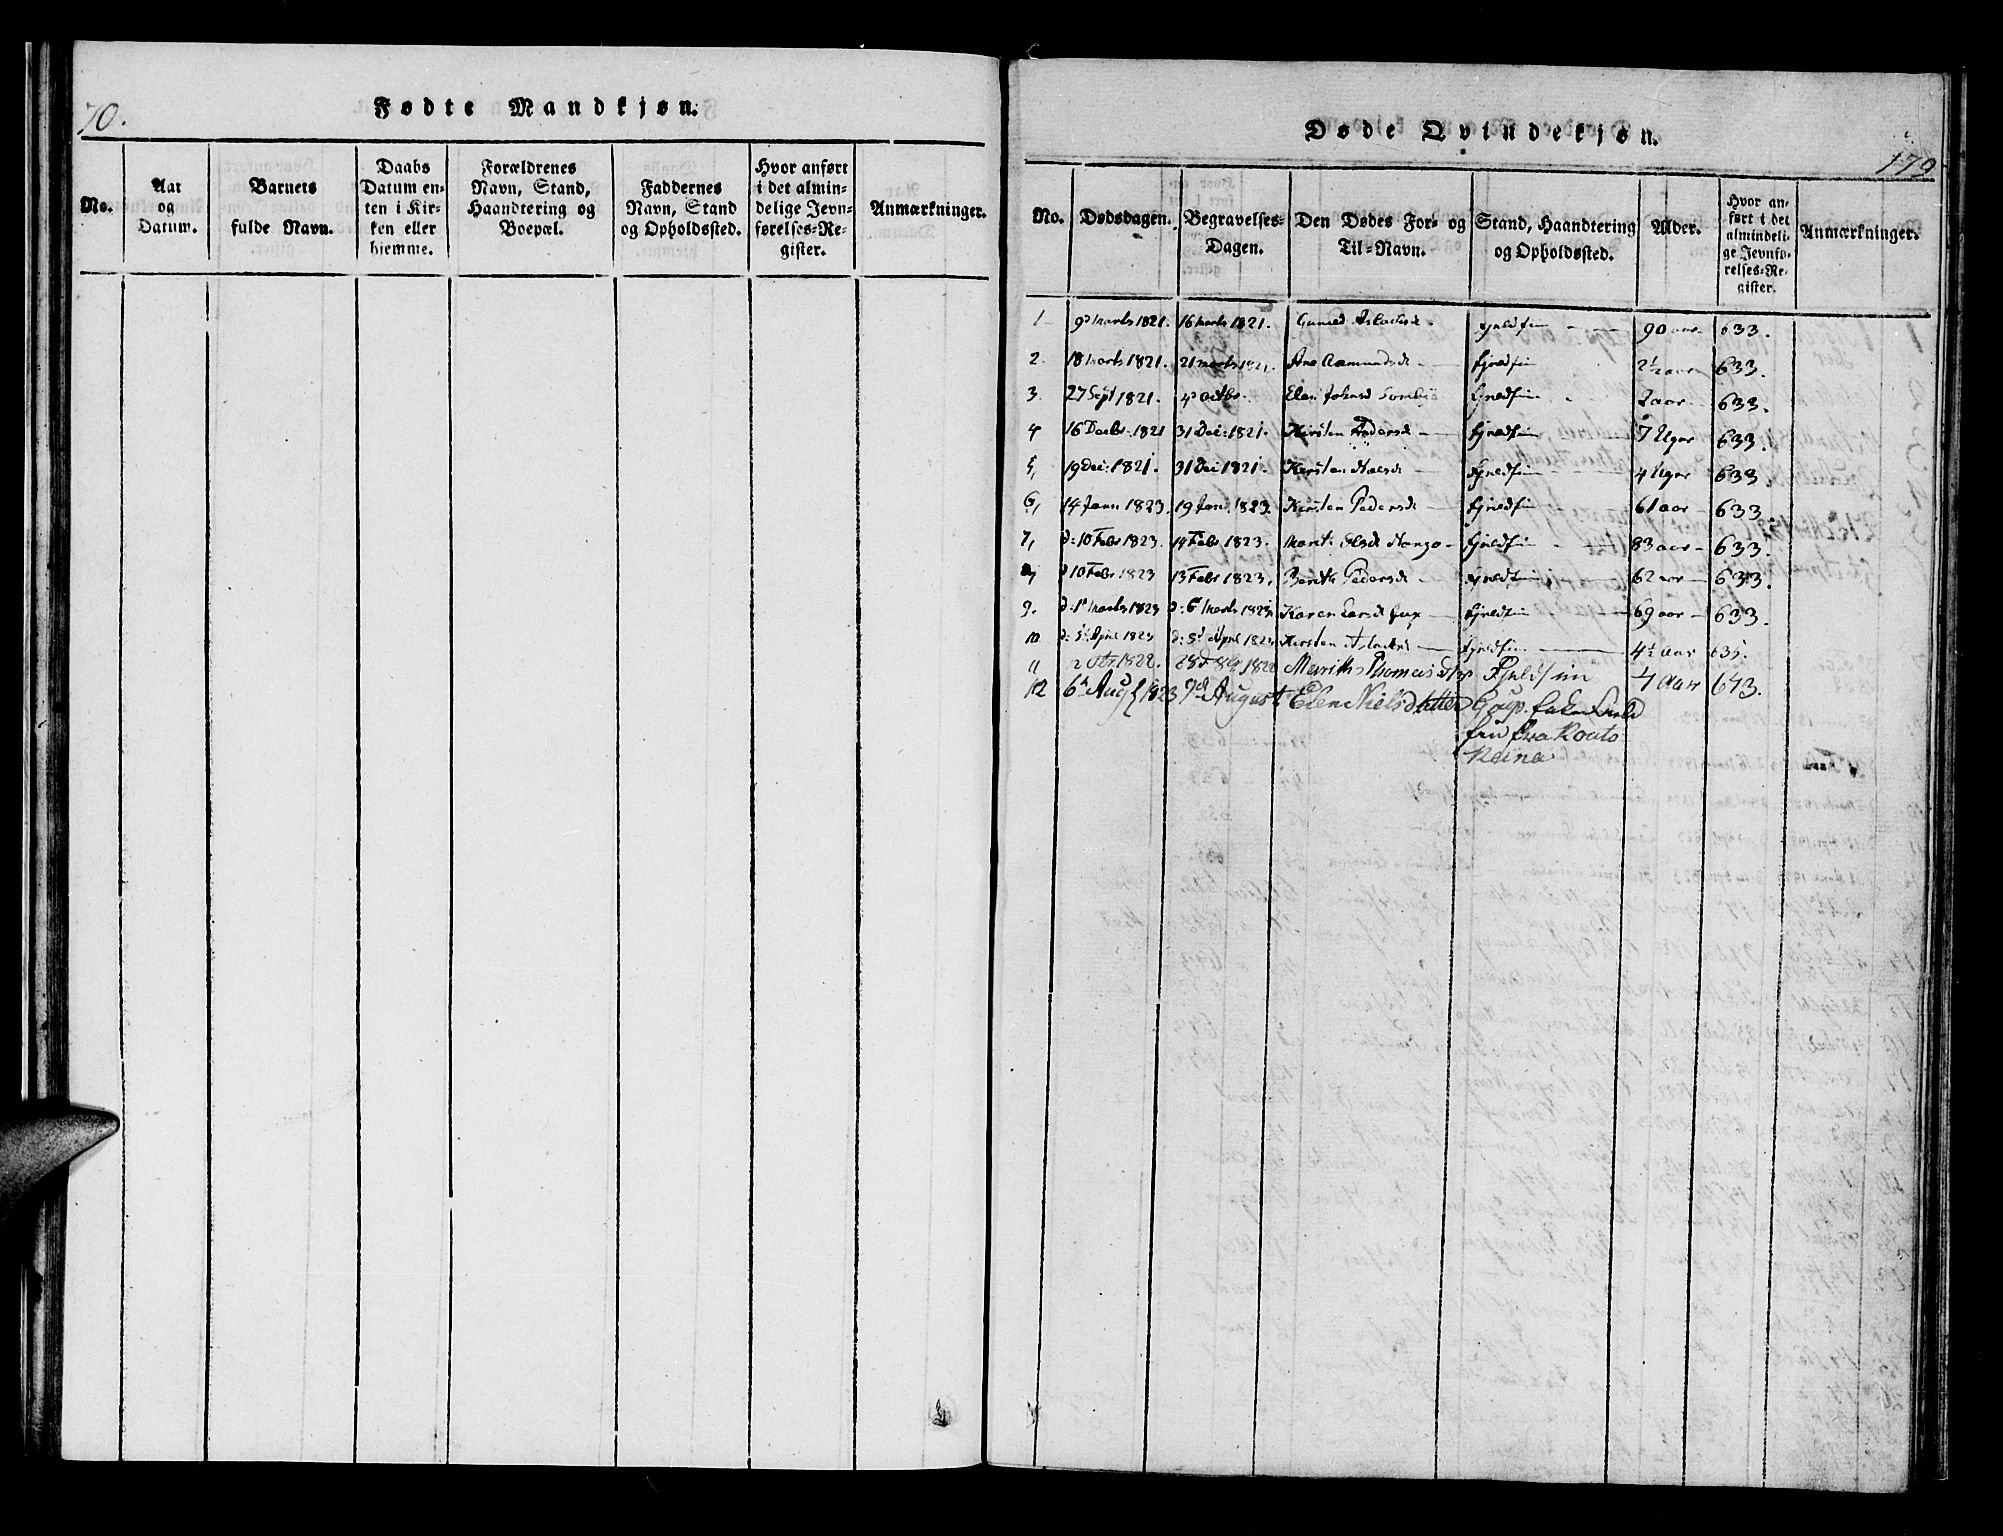 70.
Fødte Mandkjøn.
No.
Aar og Datum.
Barnets fulde Navn.
Daabs Datum enten i Kirken eller hiemme.
Forældrenes Navn, Stand, Haandtering og Boepæl.
Faddernes Navn, Stand og Opholdssted.
Hvor anført i det almindelige Jevnførelses-Register.
Anmærkninger.
Døde Qvindekjøn.
179
No. Dødsdagen. Begravelses-Dagen. Den Dødes For- og Til-Navn. Stand, Haandtering og Opholdssted. Alder. Hvor anført i det almindelige Jevnførelses-Register. Anmærkninger.
1 9d Marts 1821. 16 Marts 1821. Fjeldfin 90 aar 633.
2. 18 Marts 1821. 21 Marts 1821. Ane Aamundsd. Fjeldfin 2½ aar 633.
3. 27 Sept 1821. 4d Octbr. Elen Johnsd Fjeldfin 2 aar 633.
4 16 Decbr. 1821 31 Dec: 1821. Kirsten Fjeldfin 7 Uger 633.
5, 19 Dec: 1821. 31 Dec 1821. Kirsten Fjeldfin 4 Uger 633.
6, 14 Janu 1823. 19 Jan. 1823. Kirsten Pedersd Fjeldfin 61 aar 633.
7, d: 10 Febr 1823. 14 Febr 1823. Marit Fjeldfin 83 aar 633.
8, d 10 Febr. 1823 13 Febr 1823. Berith Pedersd Fjeldfin 62 aar 633.
9. d: 1d Marts 1823 d: 6d Marts 1823 Karen Larsd Fjeldfin 69 aar 633.
10 d: 5d April 1823 d: 8d April 1823 Kirsten Aslaksd Fjeldfin 4½ aar 633.
11 1822. 1822 Marith Thomasd Fjeldfin
12 6te Aug 1823 9d August Elen Nielsdatter 4 Aar 643.
fin fra Kouto
Keino